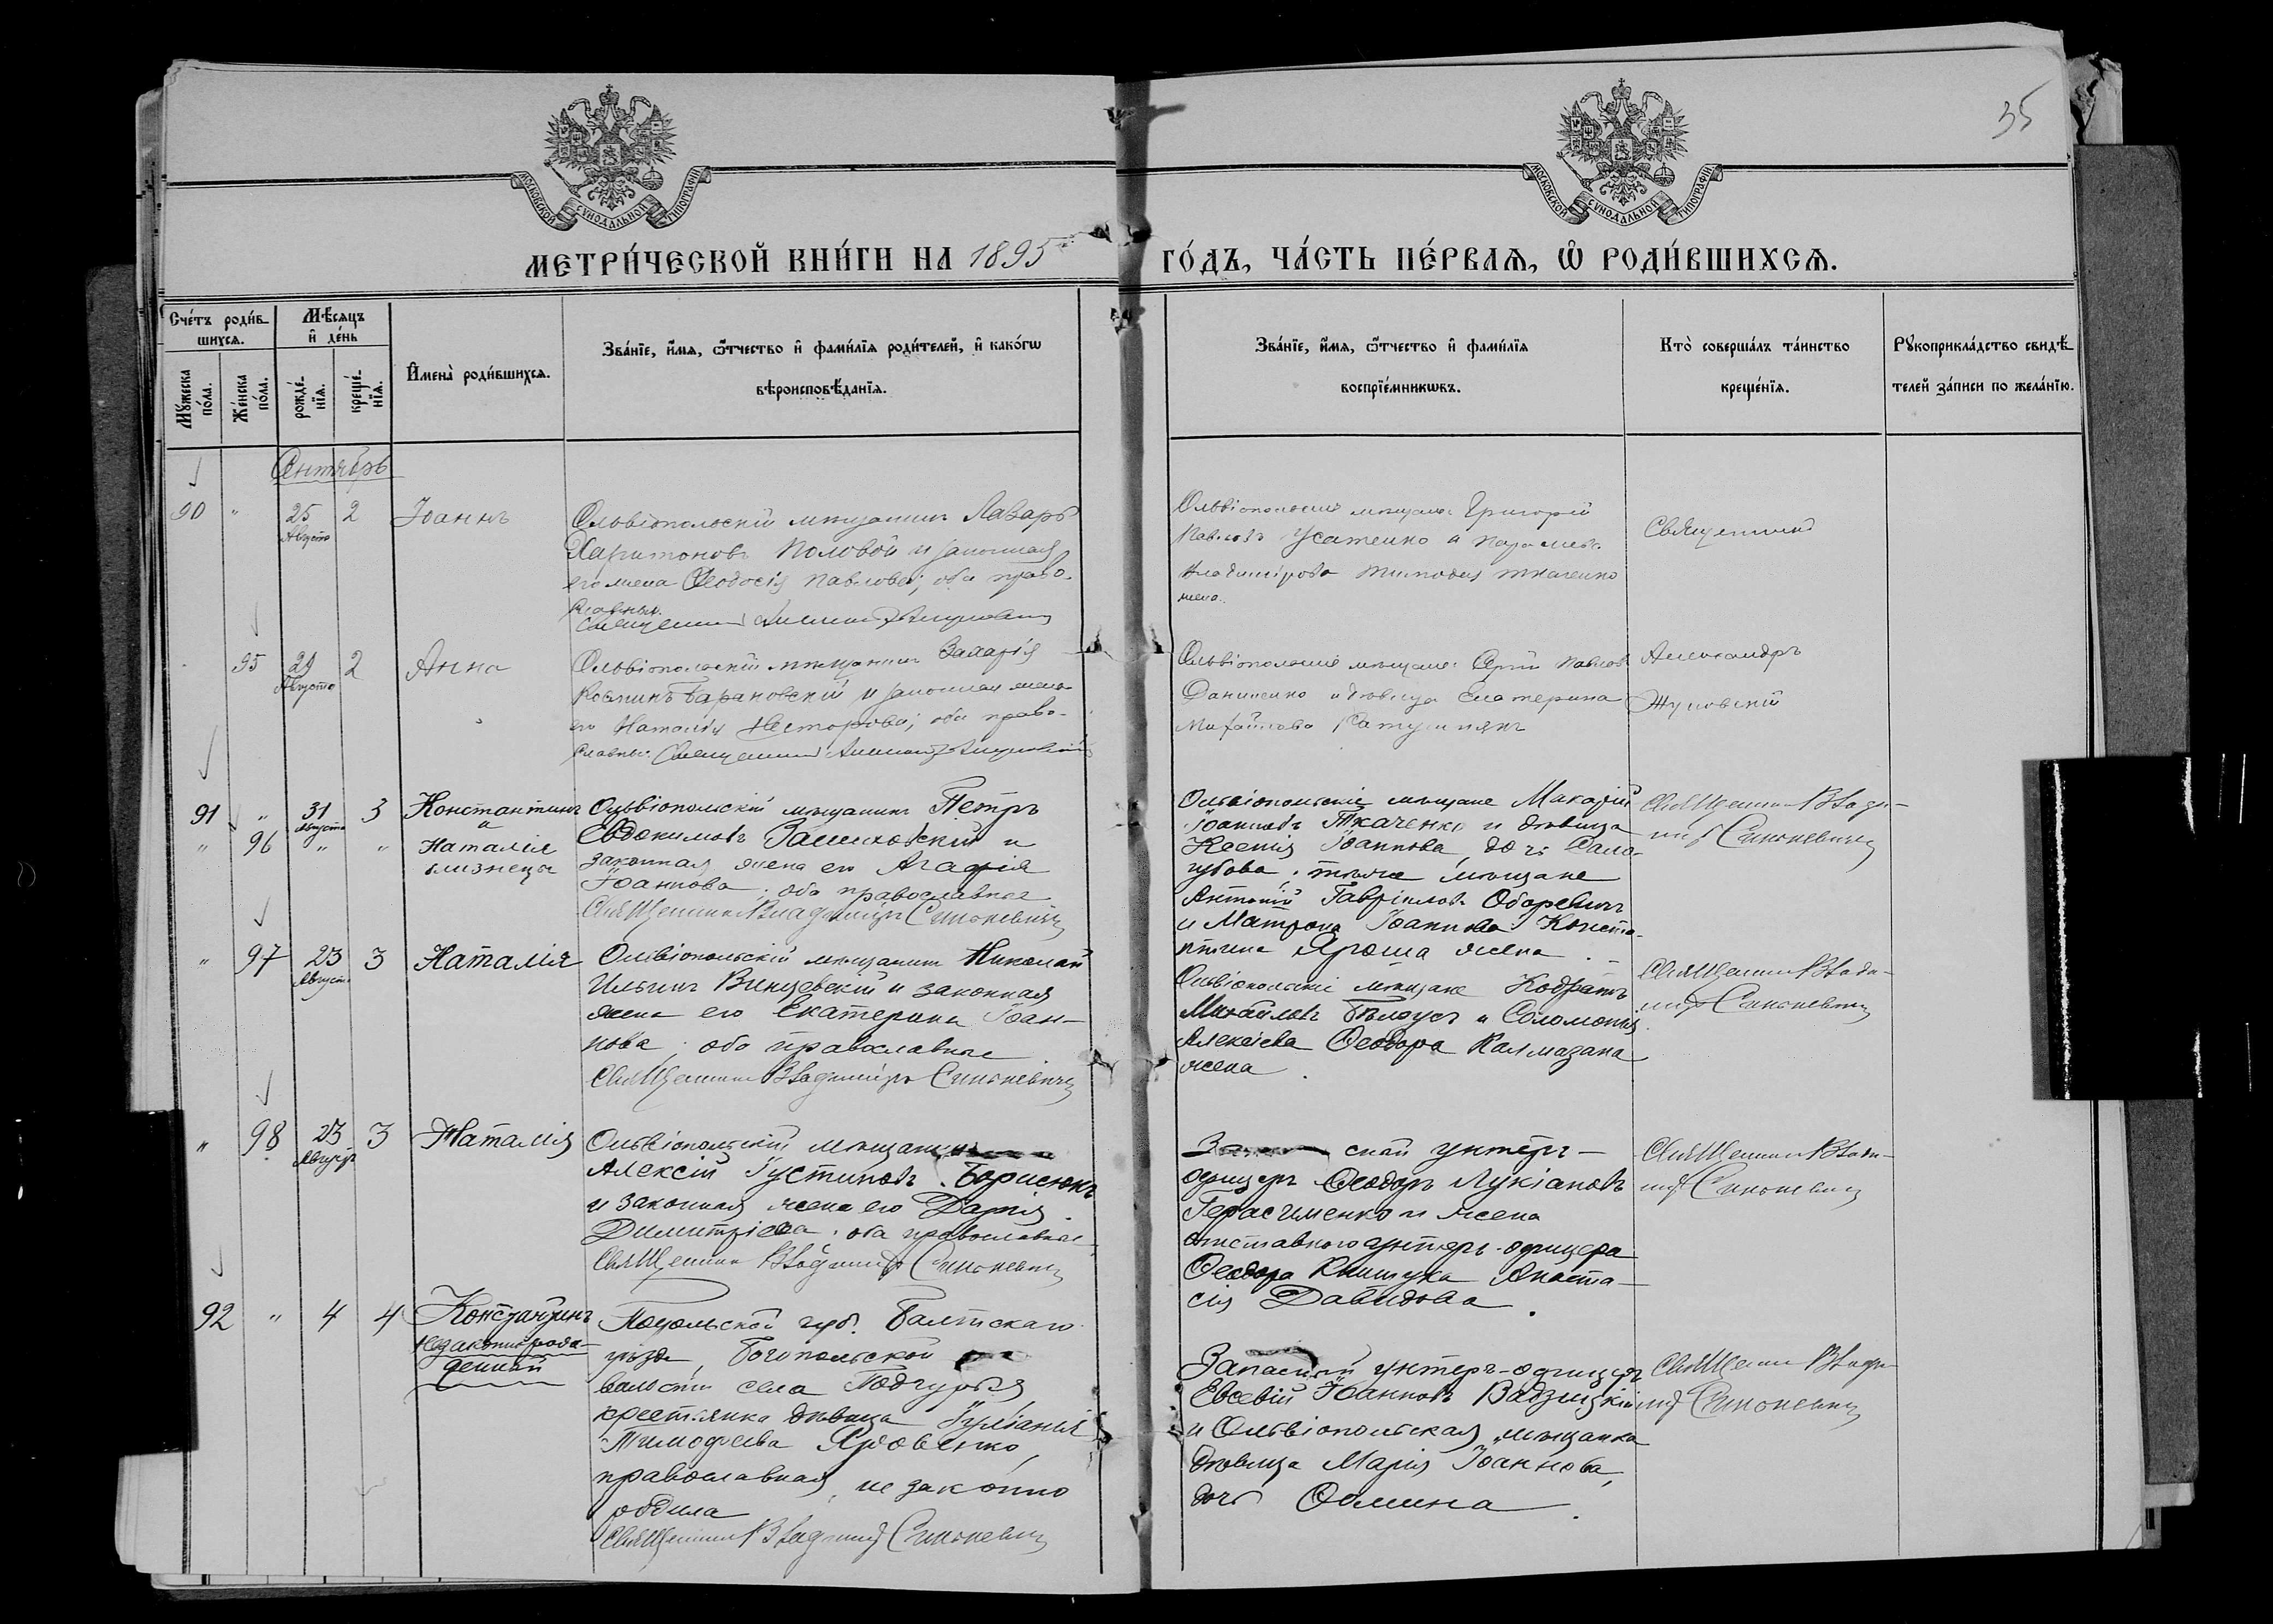 35
МОСКОВСКОЙ СѴНОДАЛЬНОЙ ТИПОГРАФІИ
МОСКОВСКОЙ СѴНОДАЛЬНОЙ ТИПОГРАФІИ
МЕТРИ́ЧЕСКОЙ КНИ́ГИ НА 1895 ГО́ДЪ, ЧА́СТЬ ПЕ́РВАѦ, Ѽ РОДИ́ВШИХСѦ.
Сче́тъ роди́в-
шихсѧ.
Мꙋ́жеска по́ла.
Же́нска по́ла.
Мѣ́сѧцъ
и҆ де́нь
рожде́-
нїѧ.
креще́-
нїѧ.
И҆мена̀ роди́вшихсѧ.
Зва́нїе, и҆́мѧ, ѻ҆́тчество и҆ фами́лїѧ роди́телей, и҆ како́гѡ
вѣроисповѣ́данїѧ.
Зва́нїе, и҆́мѧ, ѻ҆́тчество и҆ фами́лїѧ
воспрїе́мникѡвъ.
Кто̀ соверша́лъ та́инство
креще́нїѧ.
Рꙋкоприкла́дство свидѣ́-
телей за́писи по жела́нїю.
Сентябрь
90 " 25 Августа 2 Іоаннъ
Ольвіопольскій мѣщанинъ Лазарь
Харитоновъ Половой и законная
его жена Ѳеодосія Павлова; оба право-
славные.
Священникъ
Ольвіопольскіе мѣщане: Григорій
Павловъ Усатенко и
Владимірова Тимоѳея Ткаченко
жена.
Священникъ
95 29 Августа 2 Анна
Ольвіопольскій мѣщанинъ Захарія
Козминъ Барановскій и законная жена
его Наталія Несторова; оба право-
славные. Священникъ
Ольвіопольскіе мѣщане: Сергій Павловъ
Даниленко и дѣвица Екатерина
Михайлова
Александръ
Жуковскій
91 " 31 Августа 3 Константинъ
и
" 96 " " Наталія
близнецы
Ольвіопольскій мѣщанинъ Петръ
Евдокимовъ и
законная жена его Агафія
Іоаннова; оба православные
Священникъ Владиміръ Синькевичъ
Ольвіопольскіе мѣщане Макарій
Іоанновъ Ткаченко и дѣвица
Ксенія Іоаннова дочь Сало-
губова; также мѣщане
Антоній Гавріиловъ
и Матрона Іоаннова Конста-
нтина Яроша жена.
Священникъ Влади-
міръ Синькевичъ
" 97 23 Августа 3 Наталія
Ольвіопольскій мѣщанинъ Николай
Ильинъ Винцевскій и законная
жена его Екатерина Іоан-
нова; оба православные
Священникъ Владиміръ Синькевичъ
Ольвіопольскіе мѣщане Кодратъ
Михайловъ Бѣлоусъ и Соломонія
Алексіева Ѳеодора Калмазана
жена.
Священникъ Влади-
міръ Синькевичъ
" 98 23 Августа 3 Наталія
Ольвіопольскій мѣщанинъ
Алексій Іустиновъ Борисюкъ
и законная жена его Дарія
Димитріева; оба православные
Священникъ Владиміръ Синькевичъ
ской унтеръ-
офицеръ Ѳеодоръ Лукіановъ
Герасименко и жена
отставного унтеръ-офицера
Ѳеодора Анаста-
сія Давидова.
Священникъ Влади-
міръ Синькевичъ
92 " 4 4 Константинъ
незаконнорож-
денный
Подольской губ. Балтскаго
уѣзда, Богопольской
волости села Подгурья
крестьянка дѣвица Іуліанія
Тимофеева Яковенко,
православная, не законно
родила
Священникъ Владиміръ Синькевичъ
Запасный унтеръ-офицеръ
Евсевій Іоанновъ Вадзицкій
и Ольвіопольская мѣщанка
дѣвица Марія Іоаннова,
дочь Ѳомина.
Священникъ Влади-
міръ Синькевичъ